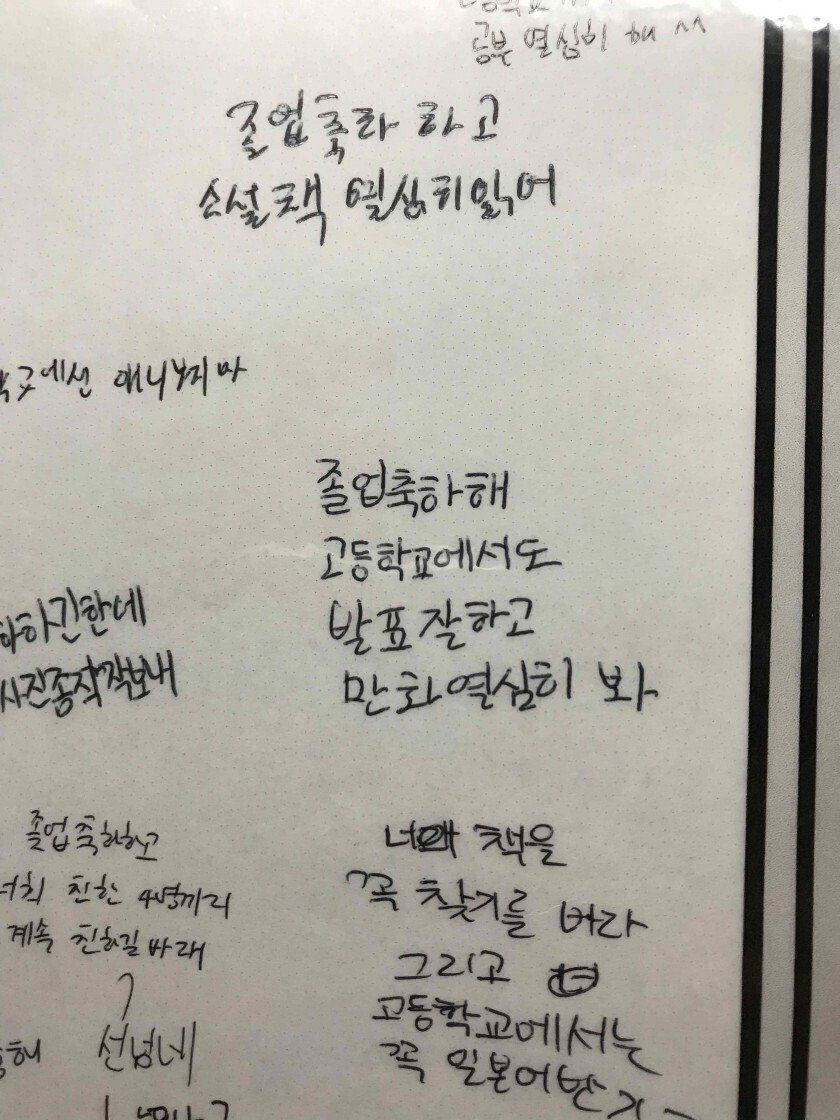 공부 열심히 해 ^^
졸업축하 하고
소설책 열심히읽어
에선 애니보지마
졸업축하해
고등학교에서도
발표잘하고
만화열심히 봐
하긴한데
사진좀작작보내
졸업축하하고
너희 친한 4명끼리
계속 친하길바래
책을
꼭 찾기를 바라
그리고
고등학교에서는
꼭 일본어반